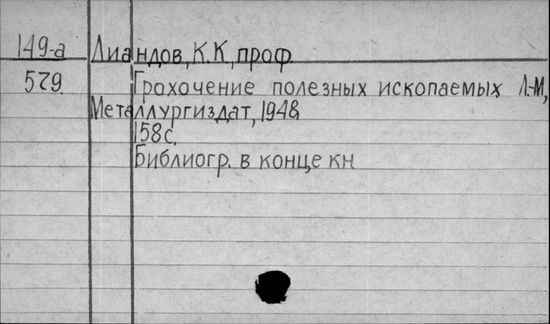 149-а Лиандов, К.К., проф.
579. Грохочение полезных ископаемых Л.-М.,
Металлургиздат, 1948
158с.
Библиогр. в конце кн